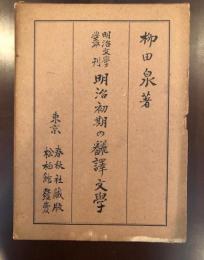 柳田泉著
明治文學叢刊
明治初期の飜譯文學
東京
春秋社藏版
松柏館發賣